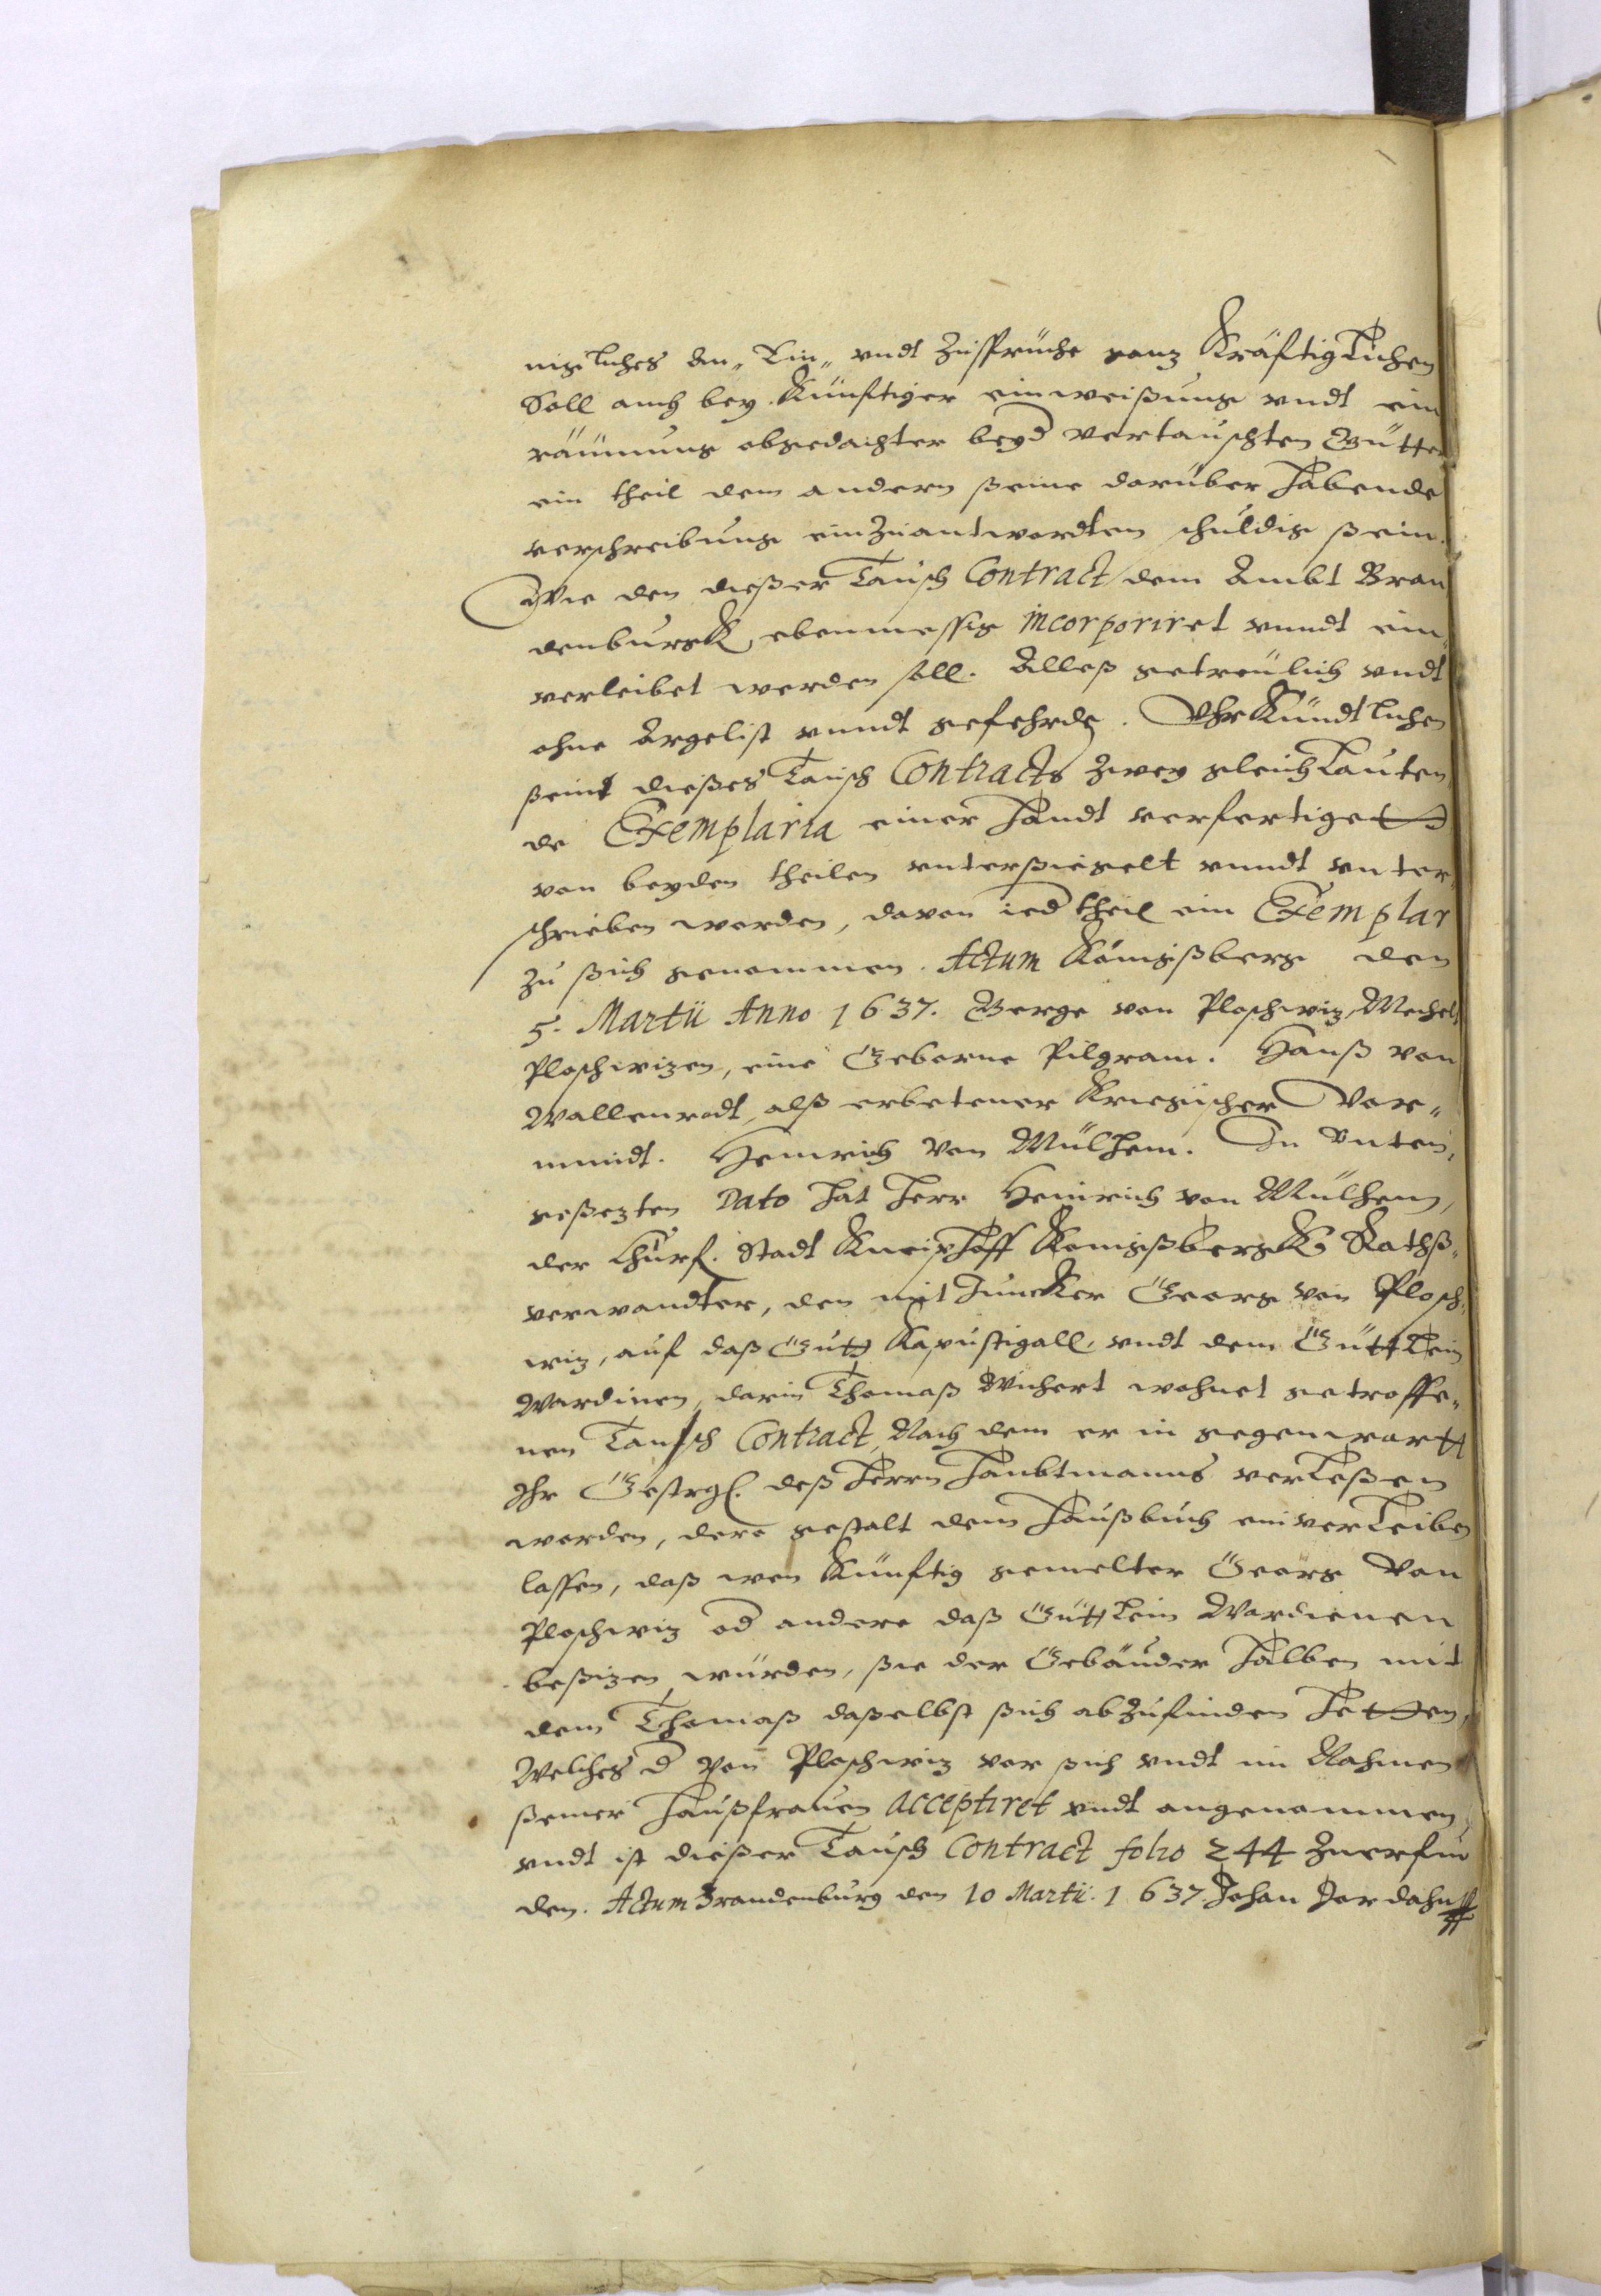 nigliches An„ Ein„ vndt Zusprüche ganz Kräftiglichen
Soll auch bey Künftiger einweißung vndt ein
räumung obgedachter beyd vertauschten Gütter
ein theil dem andern ßeine darüber habende
verschreibung einzuantwordten schuldig ßein.
Wie den dießer Tausch Contract dem Ambt Bran
denburgk ebenmessig incorporiret vundt ein
verleibet werden soll. Alleß getreulich vndt
ohne Argelist vundt gefehrde. Vhrkundtlichen
ßeind dießes Tausch Contracts zwey gleichlauten
de Exemplaria einer handt verfertigett
von beyden theilen unterßiegelt vundt unter
schrieben worden, davon ied theil ein Exemplar
zu ßich genommen. Actum Königßberg den
5. Martii Anno 1637. Gerge von Ploschwiz, Mechel
Ploschwizen, eine Geborne Pilgram. Hanß von
Wallenrodt, alß erbetener Kriegischer Vor„
mundt. Heinrich von Mülhem. In Unten
geßezten Dato hat herr Heinrich von Mülhem,
der Churf. Stadt Kneiphoff Konigßbergk Rathß„
verwandter, den mit Juncker Georg von Plosch„
wiz, auf daß Gutt Kapustigall, vndt dem Güttlein
Wardinen, darin Thomaß Wichert wohnet getroffe„
nen Tausch Contract, Nach dem er in gegenwartt
Ihr Gestrgl. deß herrn haubtmanns verleßen
worden, dere gestalt dem haußbuch einverleiben
lassen, daß wen Künftig gemelter Georg von
Ploschwiz od andere daß Güttlein Wardienen
beßizen würden, ßie der Gebäuder halben mit
dem Thomaß daßelbst ßich abzufinden hetten,
Welches d von Ploschwiz vor ßich vndt im Nahmen
ßeiner haußfrauen acceptiret vndt angenommen,
vndt ist dießer Tausch Contract folio 244 zuerfin
den. Actum Brandenburg den 10 Martii. 1637 Johan Jordahn